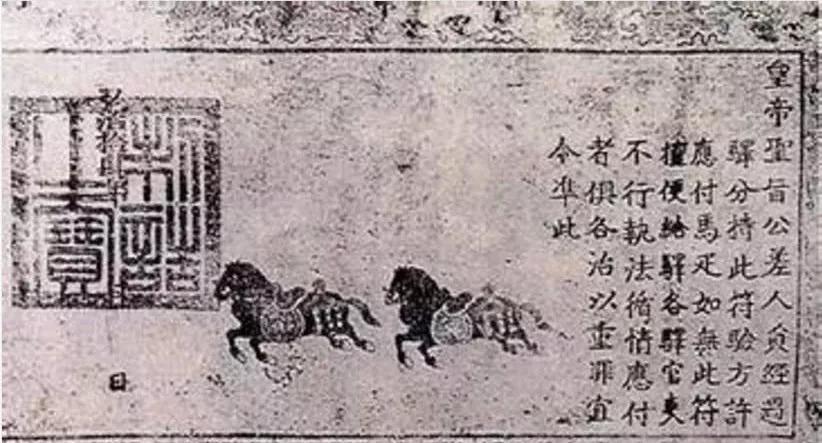 皇帝聖旨公差人貟經過
驛分持此符驗方許
應付馬疋如無此符
擅便給驛各驛官吏
不行執法循情應付
者俱各治以重罪宜
令准此
制誥之寶
日